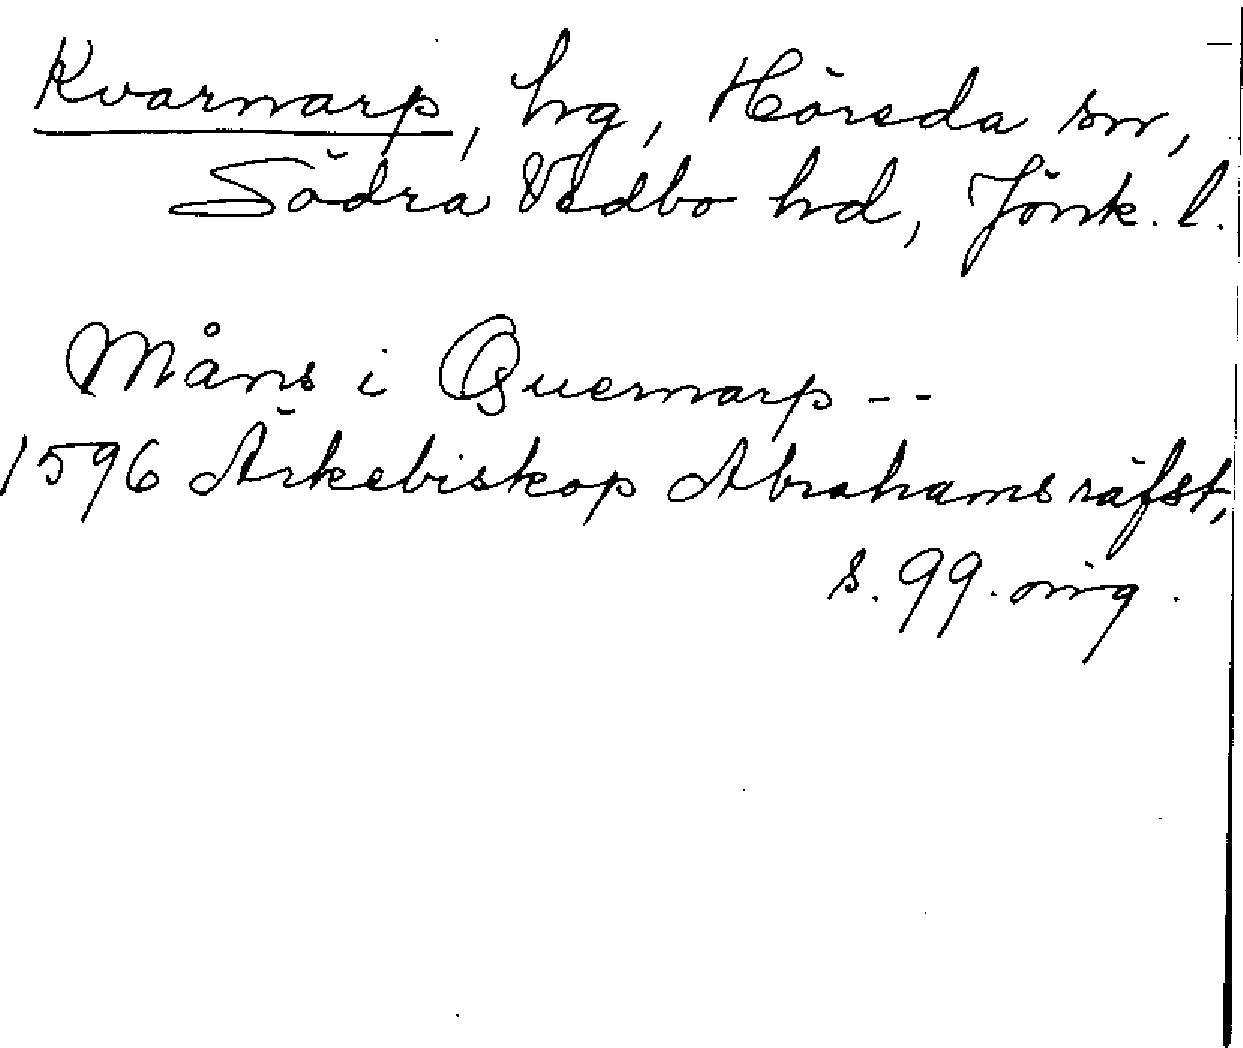 Kvarnarp, hg, Höreda sn,
Södra Vedbo hd, Jönk. l.
Måns i Quernarp --
1596 Ärkebiskop Abrahams räfst,
s. 99. mg.